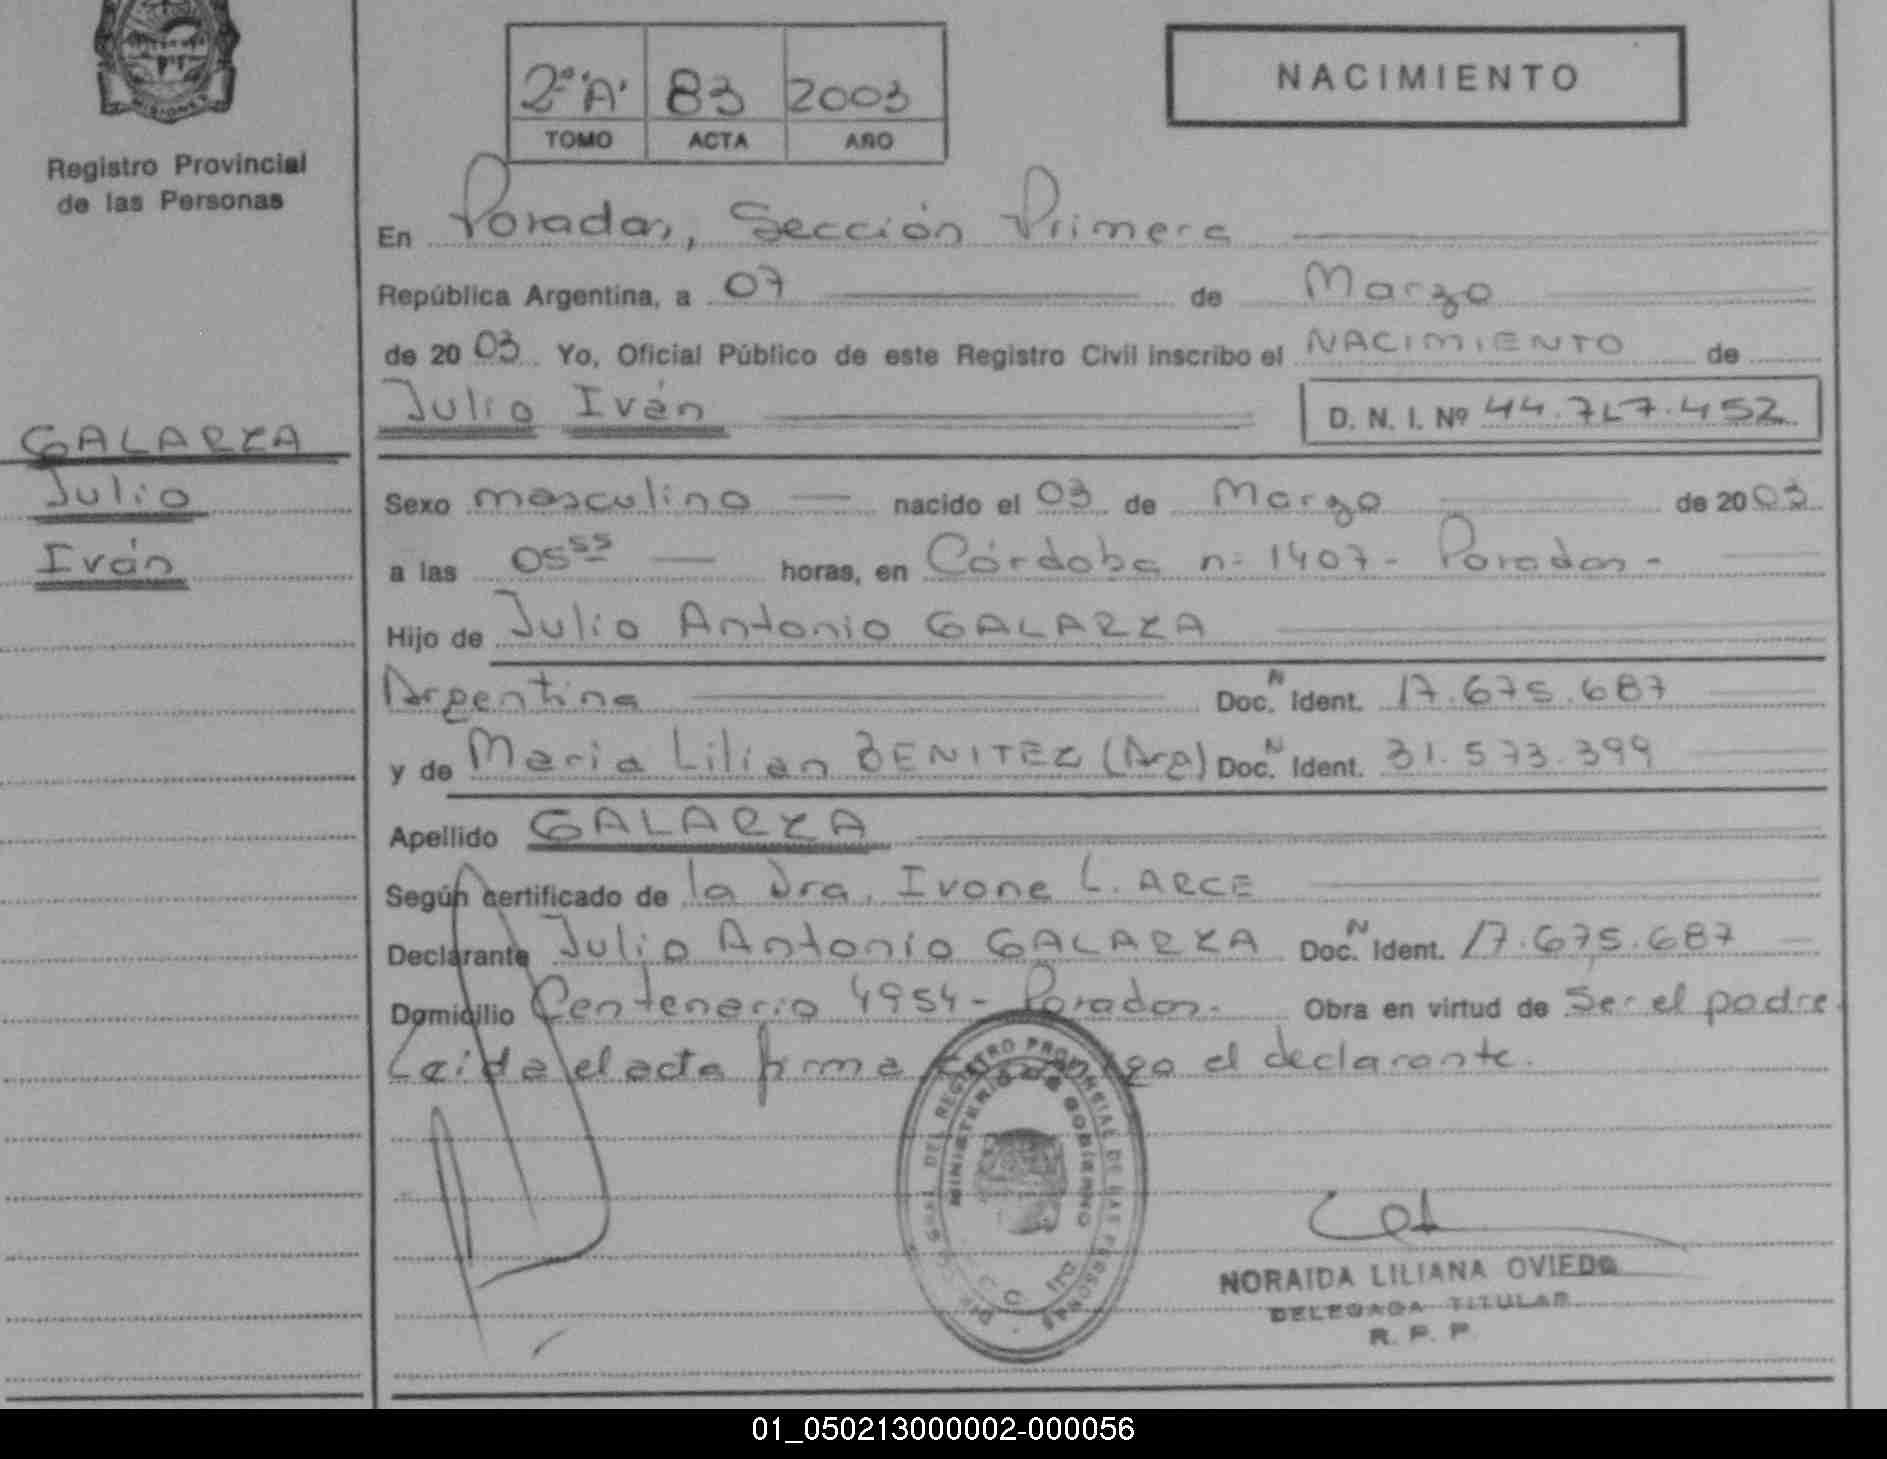 MISIONES
Registro Provincial
de las Personas
2º "A" 83 2003
TOMO ACTA AÑO
NACIMIENTO
En Posadas, Sección Primera
República Argentina, a 07 de Marzo
de 2003 Yo, Oficial Público de este Registro Civil inscribo el NACIMIENTO de
Julio Iván D. N. I. Nº 44.747.452
GALARZA
Julio
Iván
Sexo masculino nacido el 03 de Marzo de 2003
a las 05 55 horas, en Córdoba nº 1407 - Posadas -
Hijo de Julio Antonio GALARZA
Argentina Doc. N Ident. 17.675.687
y de Maria Lilian BENITEZ (Arg) Doc. N Ident. 31.573.399
Apellido GALARZA
Según certificado de la Dra. Ivone L. ARCE
Declarante Julio Antonio GALARZA Doc. N Ident. 17.675.687
Domicilio Centenario 4954 - Posadas. Obra en virtud de Ser el padre.
Leida el acta firma conmigo el declarante.
DEL REGISTRO PROVINCIAL DE LAS PERSONAS
MINISTERIO DE GOBIERNO
NORAIDA LILIANA OVIEDO
DELEGADA TITULAR
R. P. P.
01_050213000002-000056